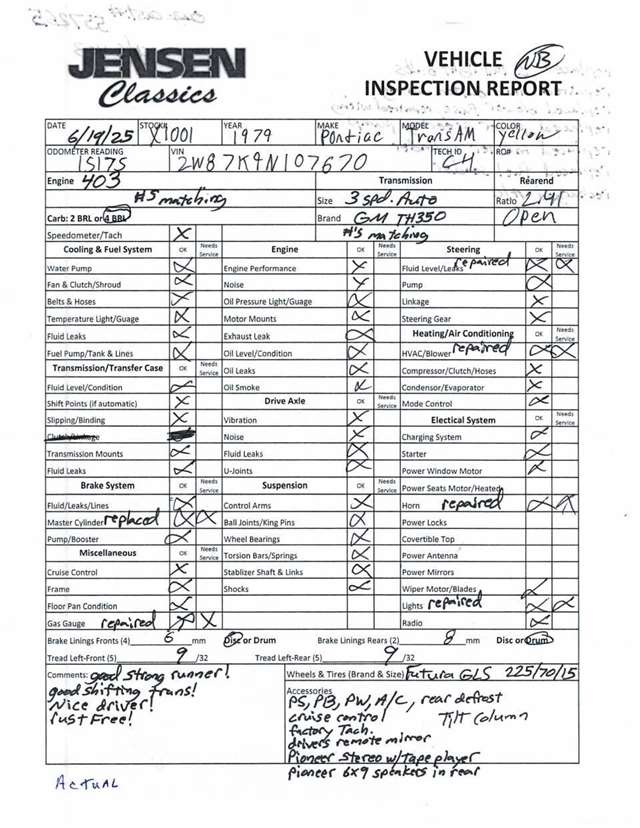 JENSEN
Classics
VEHICLE NB
INSPECTION REPORT
DATE 6/19/25 STOCK# X1001 YEAR 1979 MAKE Pontiac MODEL TransAM COLOR Yellow
ODOMETER READING 15175 VIN 2W87K9N107670 TECH ID CH RO#
Engine 403 Transmission Rearend
#'s matching Size 3 spd. Auto Ratio 2.41
Carb: 2 BRL or 4 BRL Brand GM TH350 Open
Speedometer/Tach X #'s matching
Cooling & Fuel System OK Needs Service Engine OK Needs Service Steering OK Needs Service
Water Pump Engine Performance Fluid Level/Leaks repaired
Fan & Clutch/Shroud Noise Pump
Belts & Hoses Oil Pressure Light/Guage Linkage
Temperature Light/Guage Motor Mounts Steering Gear
Fluid Leaks Exhaust Leak Heating/Air Conditioning OK Needs Service
Fuel Pump/Tank & Lines Oil Level/Condition HVAC/Blower repaired
Transmission/Transfer Case OK Needs Service Oil Leaks Compressor/Clutch/Hoses
Fluid Level/Condition Oil Smoke Condensor/Evaporator
Shift Points (if automatic) Drive Axle OK Needs Service Mode Control
Slipping/Binding Vibration Electical System OK Needs Service
Clutch/Linkage Noise Charging System
Transmission Mounts Fluid Leaks Starter
Fluid Leaks U-Joints Power Window Motor
Brake System OK Needs Service Suspension OK Needs Service Power Seats Motor/Heated
Fluid/Leaks/Lines Control Arms Horn repaired
Master Cylinder replaced Ball Joints/King Pins Power Locks
Pump/Booster Wheel Bearings Covertible Top
Miscellaneous OK Needs Service Torsion Bars/Springs Power Antenna
Cruise Control Stablizer Shaft & Links Power Mirrors
Frame Shocks Wiper Motor/Blades
Floor Pan Condition Lights repaired
Gas Gauge repaired Radio
Brake Linings Fronts (4) 6 mm Disc or Drum Brake Linings Rears (2) 8 mm Disc or Drum
Tread Left-Front (5) 9 /32 Tread Left-Rear (5) 9 /32
Comments: good strong runner! Wheels & Tires (Brand & Size) Futura GLS 225/70/15
good shifting trans! Accessories
Nice driver! PS, PB, PW, A/C, rear defrost
rust Free! cruise control Tilt Column
factory Tach.
drivers remote mirror
Pioneer Stereo w/Tape player
Pioneer 6x9 speakers in rear
ACTUAL